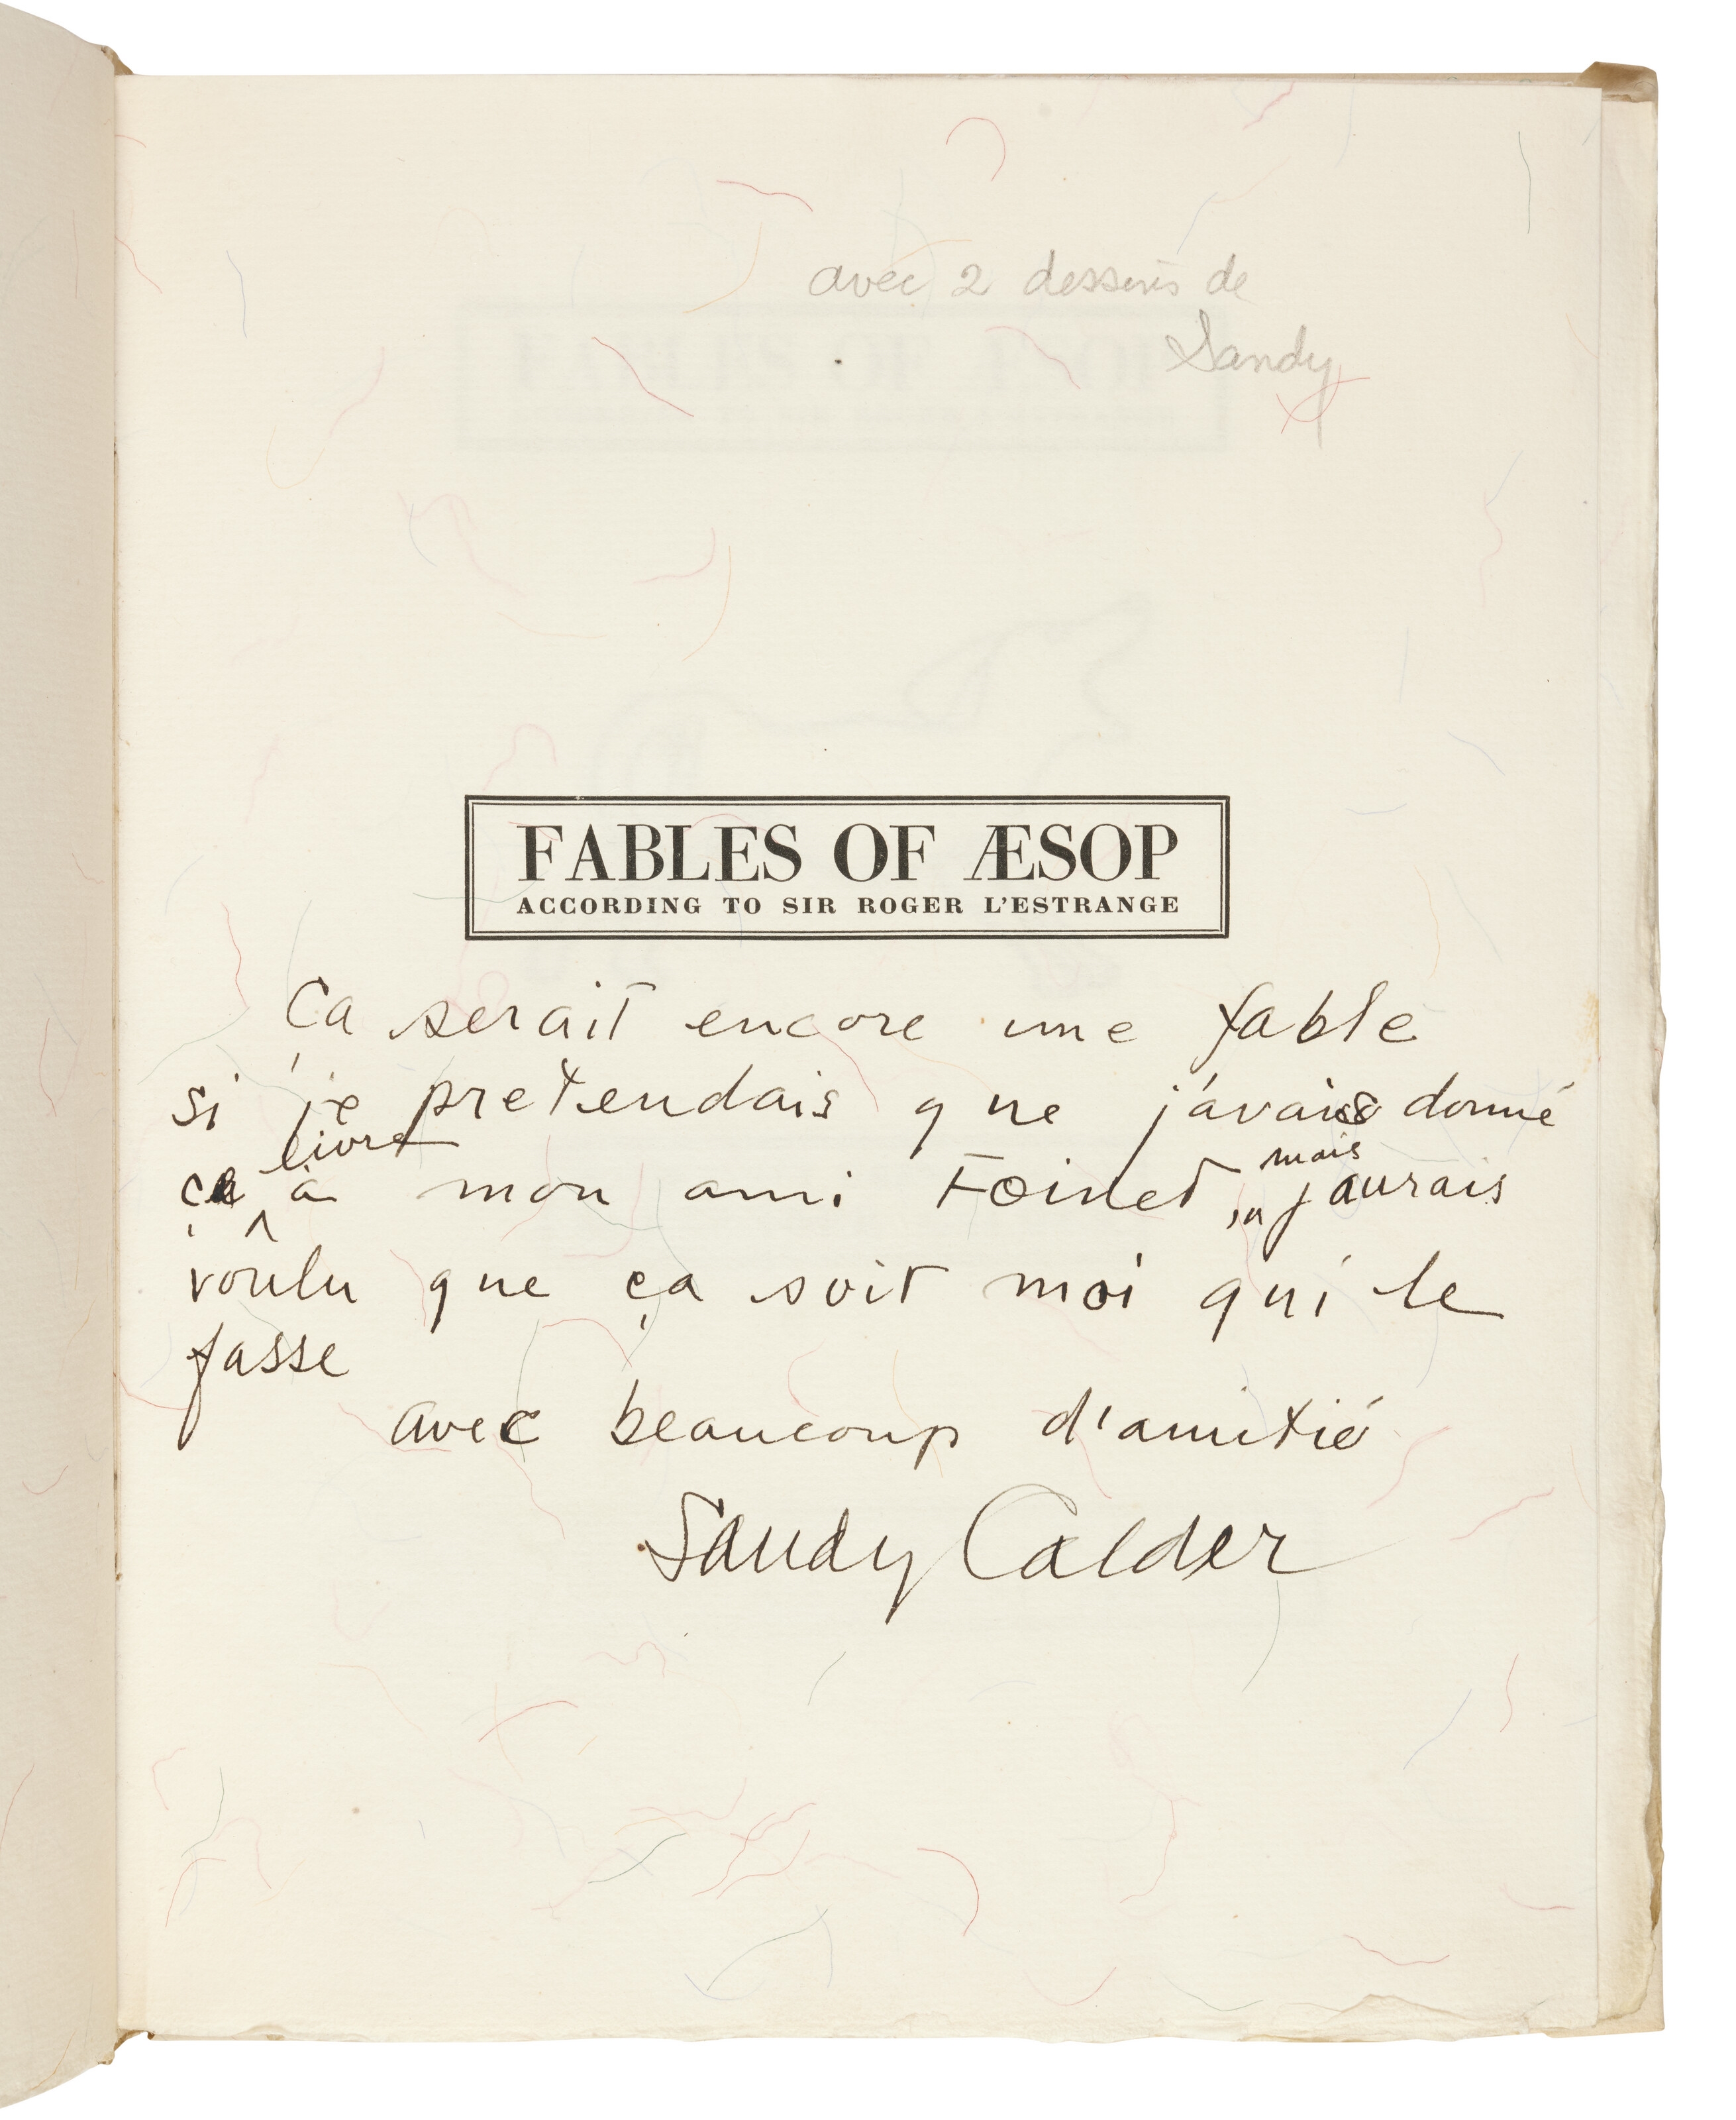 avec 2 dessins de
Sandy
FABLES OF ÆSOP
ACCORDING TO SIR ROGER L'ESTRANGE
Ça serait encore une fable
si je pretendais que j'avais donné
ce livre à mon ami Foinet, mais j'aurais
voulu que ça soit moi qui le
fasse
avec beaucoup d'amitié
Sandy Calder